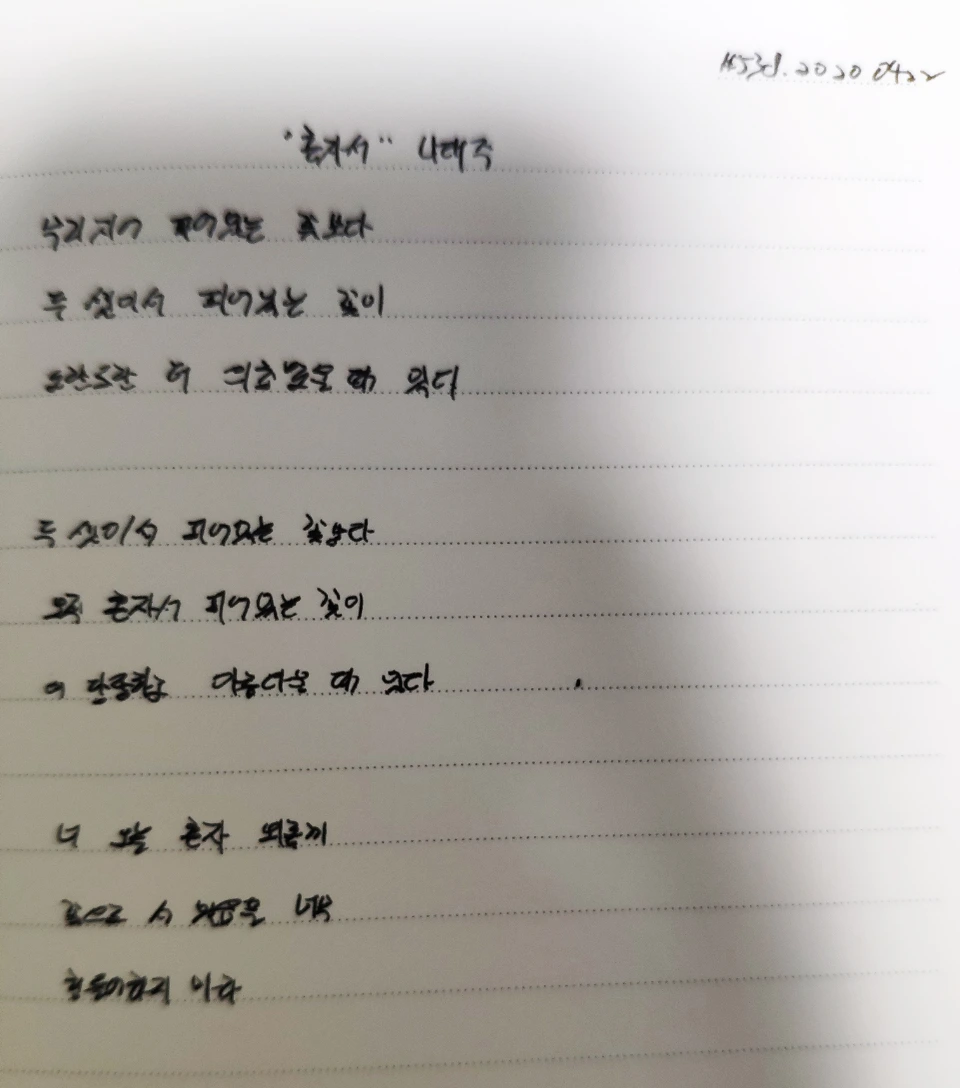 "혼자서" 나태주
무리지어 피어있는 꽃보다
두 셋이서 피어있는 꽃이
도란도란 더 의초로울 때 있다
두 셋이서 피어있는 꽃보다
오직 혼자서 피어있는 꽃이
더 당당하고 아름다울 때 있다
너 오늘 혼자 외롭게
꽃으로 서 있음을 너무
힘들어하지 마라